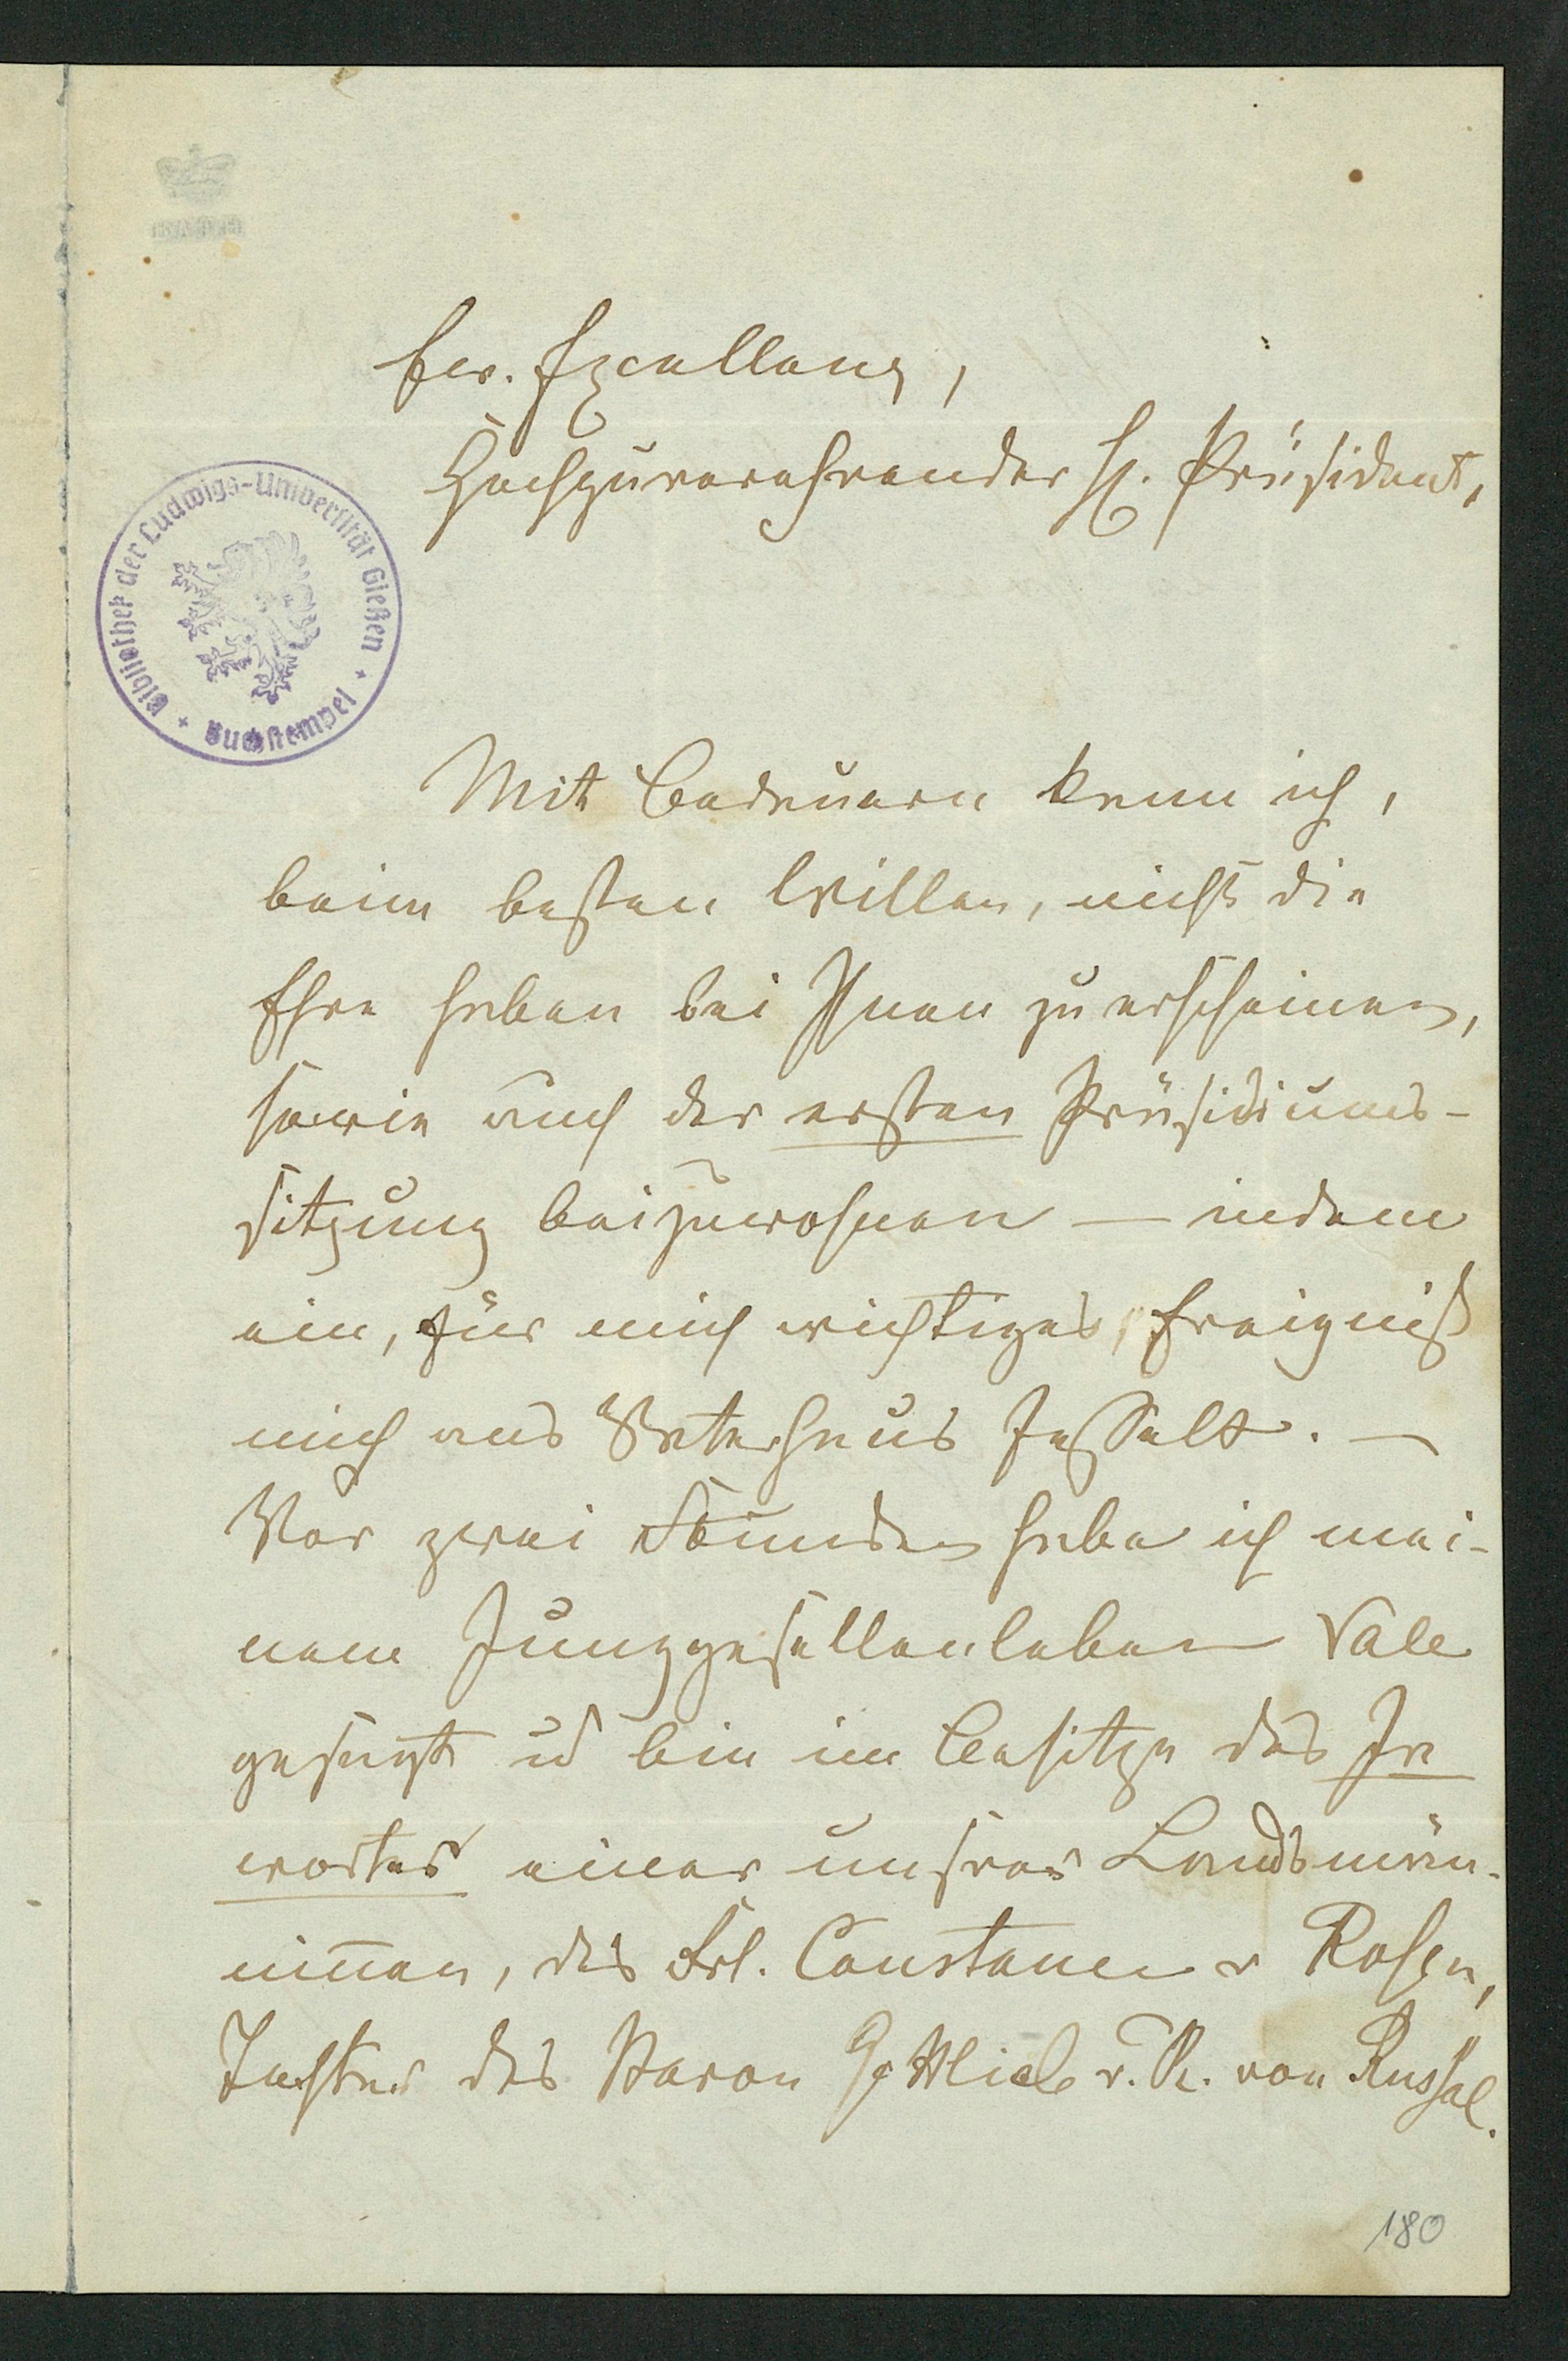 Ew. Excellenz,
Hochzuverehrender H. Präsident,
Bibliothek der Ludwigs-Universität Gießen + Buchstempel +
Mit Bedauern kann ich,
beim besten Willen, nicht die
Ehre haben bei Ihnen zu erscheinen,
sowie auch der ersten Präsidiums-
sitzung beizuwohnen — indem
ein, für mich wichtiges, Ereigniß
mich ans Vaterhaus fesselt. —
Vor zwei Stunden habe ich mei-
nem Junggesellenleben Vale
gesagt u bin im Besitze des Ja
wortes einer unsrer Landsmän-
ninnen, des Frl. Constance v Rosen,
Tochter des Baron Gottlieb v. R. von
180